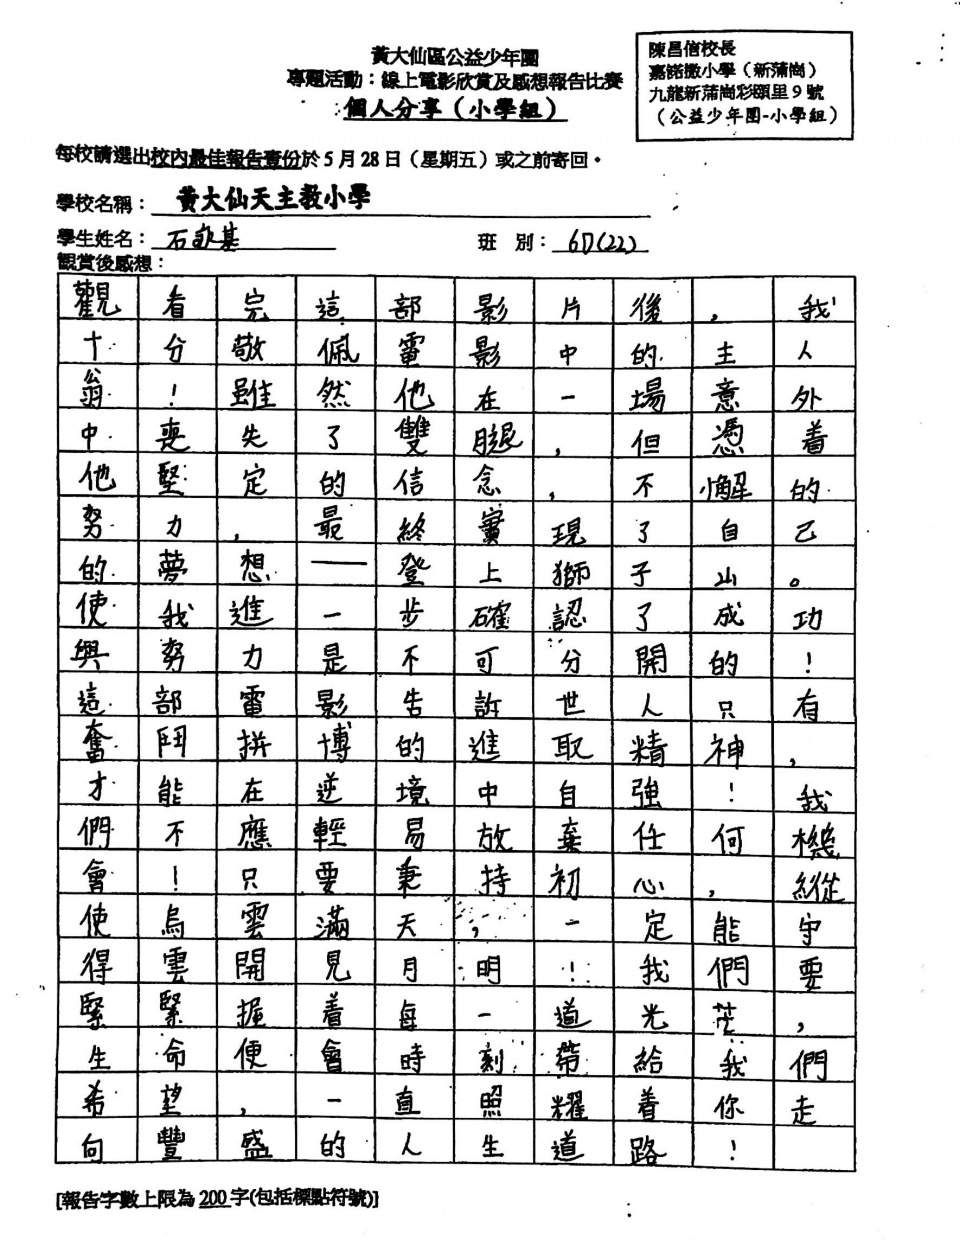 黃大仙區公益少年團
專題活動：線上電影欣賞及感想報告比賽
個人分享（小學組）
陳昌信校長
嘉諾撒小學（新蒲崗）
九龍新蒲崗彩頤里9號
（公益少年團-小學組）
每校請選出校內最佳報告壹份於5月28日（星期五）或之前寄回。
學校名稱：黃大仙天主教小學
學生姓名：石 基
班 別：6D(22)
觀賞後感想：
觀看完這部影片後，我
十分敬佩電影中的主人
翁！雖然他在一場意外
中喪失了雙腿，但憑着
他堅定的信念，不懈的
努力，最終實現了自己
的夢想—登上獅子山。
使我進一步確認了成功
與努力是不可分開的！
這部電影告訴世人只有
奮鬥拼博的進取精神，
才能在逆境中自強！我
們不應輕易放棄任何機
會！只要秉持初心，縱
使烏雲滿天，一定能守
得雲開見月明！我們要
緊緊握着每一道光芒，
生命便會時刻帶給我們
希望，一直照耀着你走
向豐盛的人生道路！
[報告字數上限為200字(包括標點符號)]